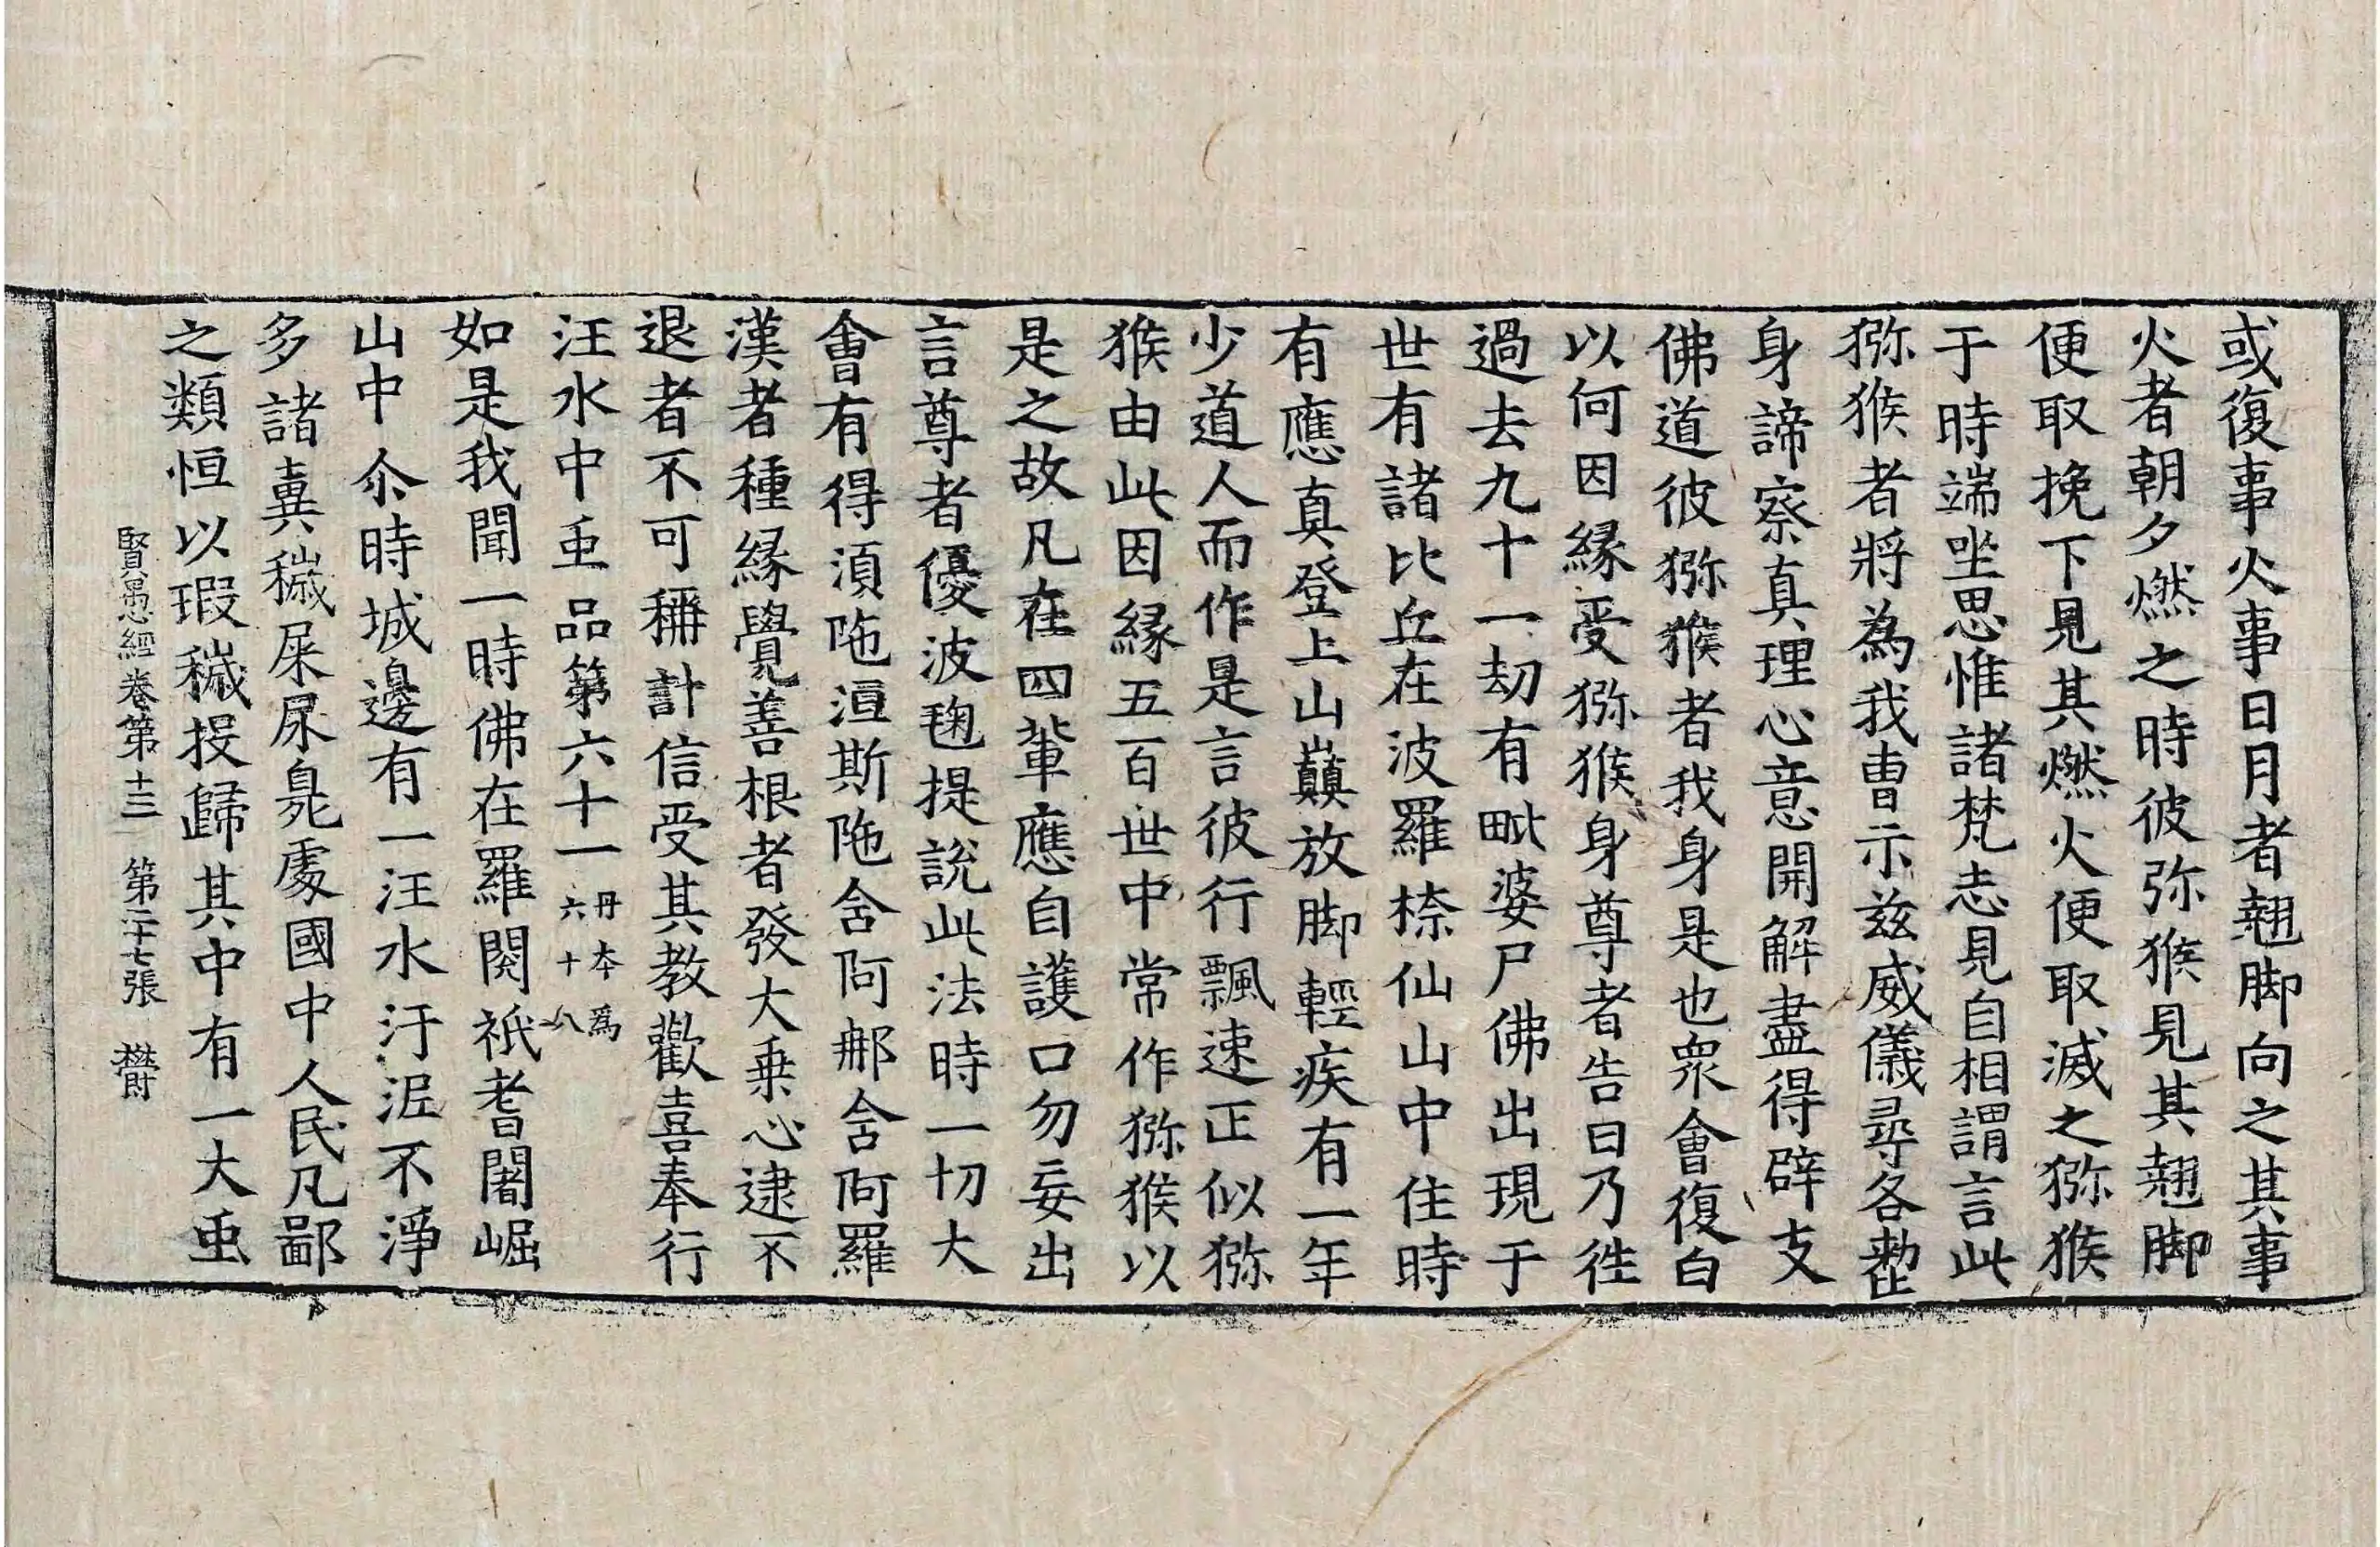 或復事火事日月者翹脚向之其事
火者朝夕燃之時彼弥猴見其翹脚
便取挽下見其燃火便取滅之猕猴
于時端坐思惟諸梵志見自相謂言此
猕猴者將為我曺示兹威儀尋各整
身諦察真理心意開解盡得辟支
佛道彼猕猴者我身是也衆會復白
以何因縁受猕猴身尊者告曰乃徃
過去九十一劫有毗婆尸佛出現于
世有諸比丘在波羅㮈仙山中住時
有應真登上山巔放脚輕疾有一年
少道人而作是言彼行飄速正似猕
猴由此因縁五百世中常作猕猴以
是之故凡在四軰應自護口勿妄出
言尊者優波毱提說此法時一切大
會有得湏陁洹斯陁含阿𨚗含阿羅
漢者種縁覺善根者發大乗心逮不
退者不可稱計信受其教歡喜奉行
汪水中䖝品第六十一丹本為六十八
如是我聞一時佛在羅閱祇耆闍崛
山中尒時城邊有一汪水汙泥不淨
多諸糞穢屎尿臭處國中人民凡鄙
之類恒以瑕穢投歸其中有一大䖝
賢愚經卷第十三 第二十七張 欝